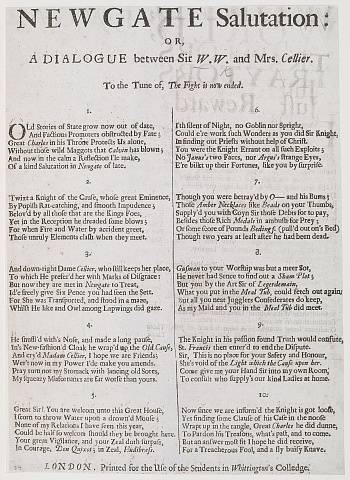 NEWGATE Salutation:
OR,
A DIALOGUE between Sir W.W. and Mrs. Cellier.
To the Tune of, The Fight is now ended.
1.
OLd Stories of State grow now out of date,
And Factious Promoters obstructed by Fate;
Great Charles in his Throne Protects Us alone,
Without those wild Maggots that Calvin has blown;
And now in the calm a Reflection I'le make,
Of a kind Salutation in Newgate of late.
2.
Twixt a Knight of the Craft, whose great Eminence,
By Popish Rat-catching, and smooth Impudence;
Belov'd by all those that are the Kings Foes,
Yet in the Reception he dreaded some blows;
For when Fire and Water by accident greet,
Those unruly Elements clash when they meet.
3.
And down-right Dame Cellier, who still keeps her place,
To which He prefer'd her with Marks of Disgrace:
But now they are met in Newgate to Treat,
I'de freely give Six Pence you had seen the Sett.
For she was Transported, and stood in a maze,
Whilst He like and Owl among Lapwings did gaze.
4.
He snufl'd with's Nose, and made a long pause,
In's New-fashion'd Cloak he wrap'd up the Old Cause,
And cry'd Madam Cellier, I hope we are Friends;
Wer't now in my Power I'de make you amends.
Pray turn not my Stomach with lancing old Sores,
My squeazy Misfortunes are far worse than yours.
5.
Great Sir! You are welcom unto this Great House,
I scorn to throw Water upon a drown'd Mouse;
None of my Relations I have seen this year,
Could be half so welcom should they be brought here.
Your great Vigilance, and your Zeal durst surpass,
In Courage, Don Quixot; in Zeal, Hudibrass.
6.
I'th silent of Night, no Goblin nor Spright,
Could e're work such Wonders as you did Sir Knight,
In finding out Priests without help of Christ.
You were the Knight Errant on all such Exploits;
No Janus's two Faces, nor Argus's strange Eyes,
E're bilkt up their Fortunes, like you by surprise.
7.
Though you were betray'd by O— and his Bums;
Those Amber Necklaces like Beads on your Thumbs,
Supply'd you with Coyn for those Debts for to pay,
Besides those Rich Medals in antheose for Prey;
Or some score of Pounds Beding (pull'd out on's Bed)
Though two years at least after he had been dead.
8.
Gusman to your Worship was but a meer Sot,
He never had Sence to find out a Sham Plot,
But you by the Art Sir of Legerdemain,
What you put in the Meal Tub, could fetch out again;
But all you neat Jugglers Confederates do keep,
As my Maid and you in the Meal Tub did meet.
9.
The Knight in his passion found Truth would confute,
St. Francis then enter'd to end the Dispute.
Sir, This is no place for your Safety and Honour,
She's void of the Light which the Cause upon her.
Come give me your Hand Sir into my own Room,
To consult who supply's our kind Ladies at home.
10.
Now since we are inform'd the Knight is got loose,
Yet finding some Clause of his Case in the noose
Wraps up in the tangle, Great Charles he did dunne,
To Pardon his Treasons, what's past, and to come.
But an answer most fit I hope he did receive,
For a Treacherous Fool, and a sly baisly Knave.
LONDON, Printed for the Use of the Students in Whittington's Colledge.